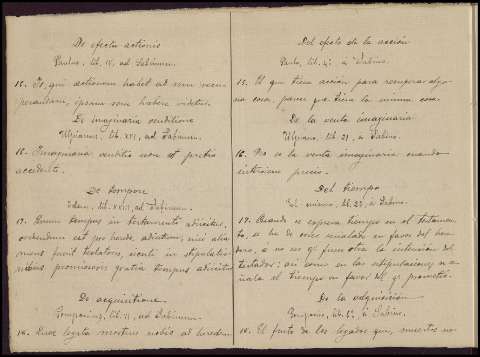 De efectu actionis
Paulus, lib. IV, ad Sabinum.
15. Is, qui actionem habet ad rem recu
perandam, ipsam rem habere videtur.
De imaginaria venditione
Ulpianus, lib. XXI, ad Sabinum.
16. Imaginaria venditio non est pretio
accedente.
De tempore
Idem, lib. XXII, ad Sabinum.
17. Quum tempus in testamento adiicitur,
credendum est pro herede adiectum, nisi alia
mens fuerit testatoris, sicuti in stipulatio
nibus promissoris gratia tempus adiicitur
De acquisitione
Pomponius, lib. II, ad Sabinum.
18. Quae legata mortuis nobis ad heredem
Del efecto de la acción
Paulo, lib. 4º á Sabino.
15. El que tiene acción para recuperar algu-
na cosa, parece que tiene la misma cosa.
De la venta imaginaria
Ulpiano, lib. 21, á Sabino.
16. No es la venta imaginaria cuando
interviene precio.
Del tiempo
El mismo, lib. 22, á Sabino.
17. Cuando se expresa tiempo en el testamen-
to, se ha de creer señalado en favor del here
dero, á no ser qº fuere otra la intención del
testador: así como en las estipulaciones se se
ñala el tiempo en favor del qº prometió.
De la adquisición
Pomponio, lib. 2º, á Sabino.
18. El fruto de los legados que, muertos no-